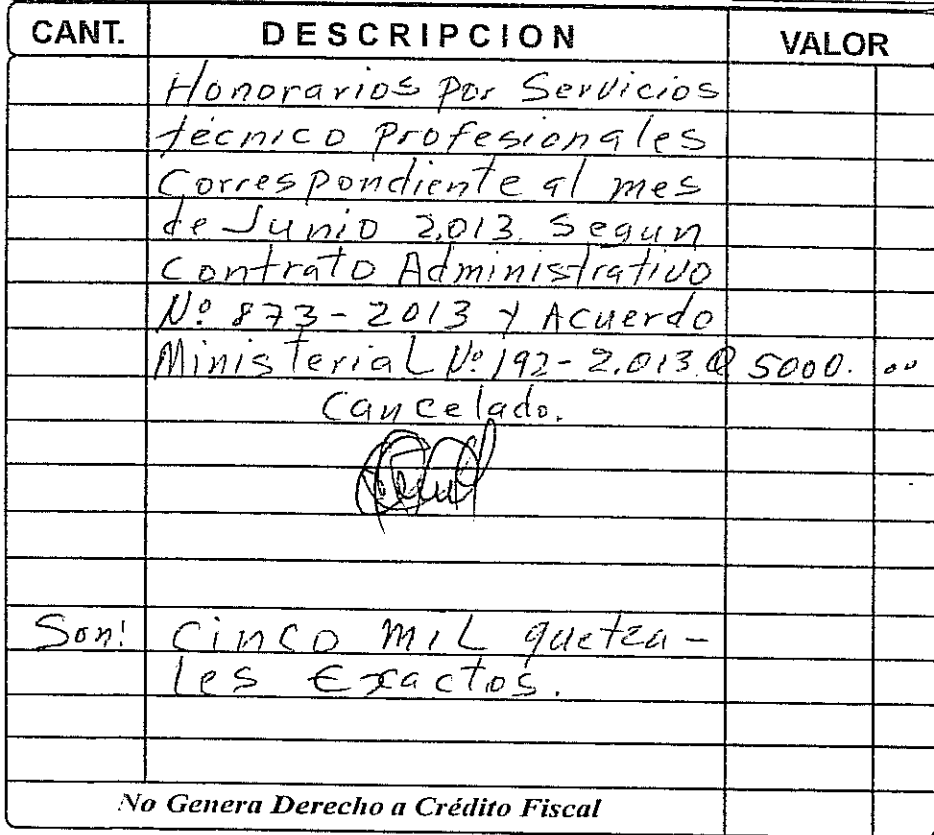 CANT. DESCRIPCION VALOR
Honorarios por Servicios
técnico Profesionales
Correspondiente al mes
de Junio 2,013. Segun
Contrato Administrativo
Nº 873-2013 y Acuerdo
Ministerial Nº 192-2.013. Q 5000. 00
Cancelado.
Son: Cinco Mil quetza-
les Exactos.
No Genera Derecho a Crédito Fiscal